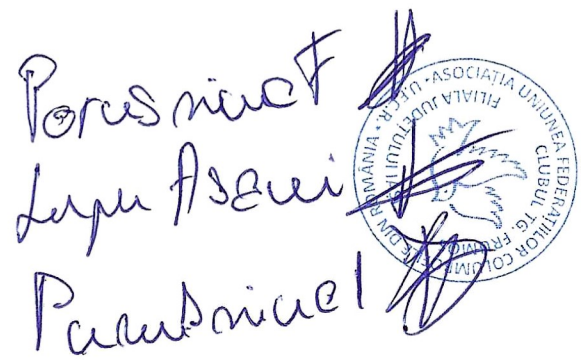 Porusniuc F
Lupu Asavei
Parusniuc I
ASOCIAȚIA UNIUNEA FEDERAȚIILOR COLUMBOFILE DIN ROMÂNIA • U.F.C.R. •
FILIALA JUDEȚULUI IAȘI
CLUBUL TG. FRUMOS